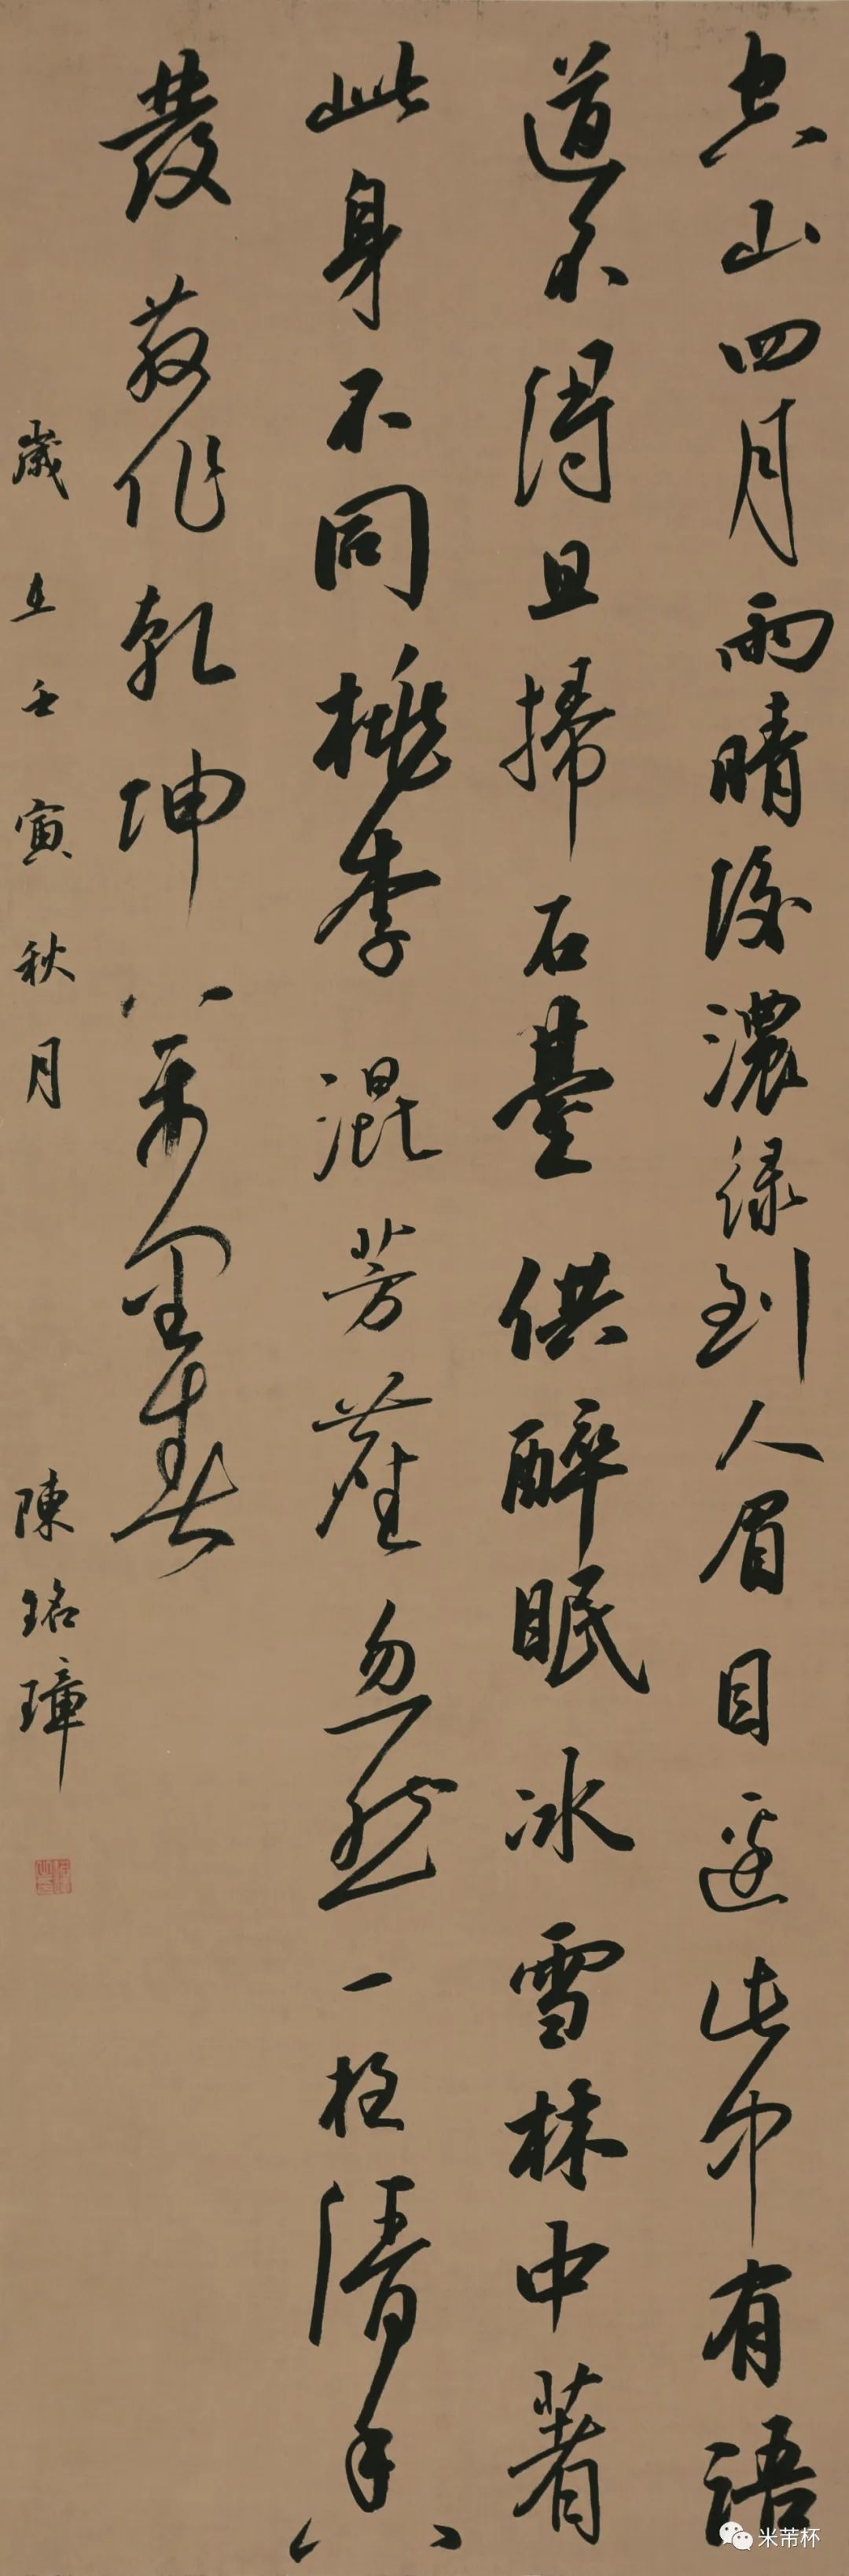 空山四月雨晴後濃緑到人眉目邊此有語
道不得且掃石臺供醉眠冰雪林中著
此身不同桃李混芳塵忽然一夜清香
發散作乾坤萬里春
歲在壬寅秋月 陳銘璋
米芾杯